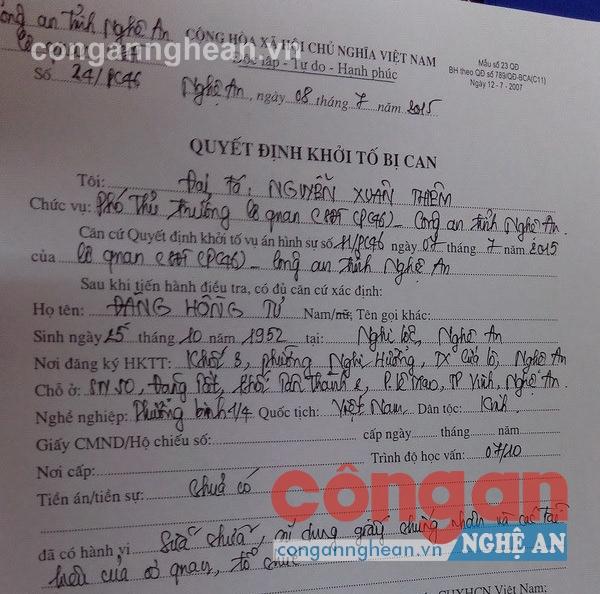 Công an tỉnh Nghệ An
congannghean.vn
CỘNG HÒA XÃ HỘI CHỦ NGHĨA VIỆT NAM
Độc lập - Tự do - Hạnh phúc
Mẫu số 23 QĐ
BH theo QĐ số 789/QĐ-BCA(C11)
Ngày 12 - 7 - 2007
Số 24/PC46
Nghệ An, ngày 08 tháng 7 năm 2015
QUYẾT ĐỊNH KHỞI TỐ BỊ CAN
Tôi: Đại tá, NGUYỄN XUÂN THIÊM
Chức vụ: Phó Thủ trưởng Cơ quan CSĐT (PC46) - Công an tỉnh Nghệ An
Căn cứ Quyết định khởi tố vụ án hình sự số 11/PC46 ngày 07 tháng 7 năm 2015
của Cơ quan CSĐT (PC46) - Công an tỉnh Nghệ An
Sau khi tiến hành điều tra, có đủ căn cứ xác định:
Họ tên: ĐẶNG HỒNG TƯ Nam/nữ; Tên gọi khác:
Sinh ngày 25 tháng 10 năm 1952 tại: Nghi Lộc, Nghệ An
Nơi đăng ký HKTT: Khối 3, phường Nghi Hương, TX Cửa Lò, Nghệ An
Chỗ ở: SN 50, Đặng Tất, khối Tân Thành 2, P. Lê Mao, TP Vinh, Nghệ An.
Nghề nghiệp: Thương binh 4/4 Quốc tịch: Việt Nam Dân tộc: Kinh
Giấy CMND/Hộ chiếu số: cấp ngày tháng năm
Nơi cấp: Trình độ học vấn: 07/10
Tiền án/tiền sự: Chưa có
công an
đã có hành vi Sửa chữa, sử dụng giấy chứng nhận và các tài
congannghean.vn NGHỆ AN
liệu của cơ quan, tổ chức
CHXHCN Việt Nam: